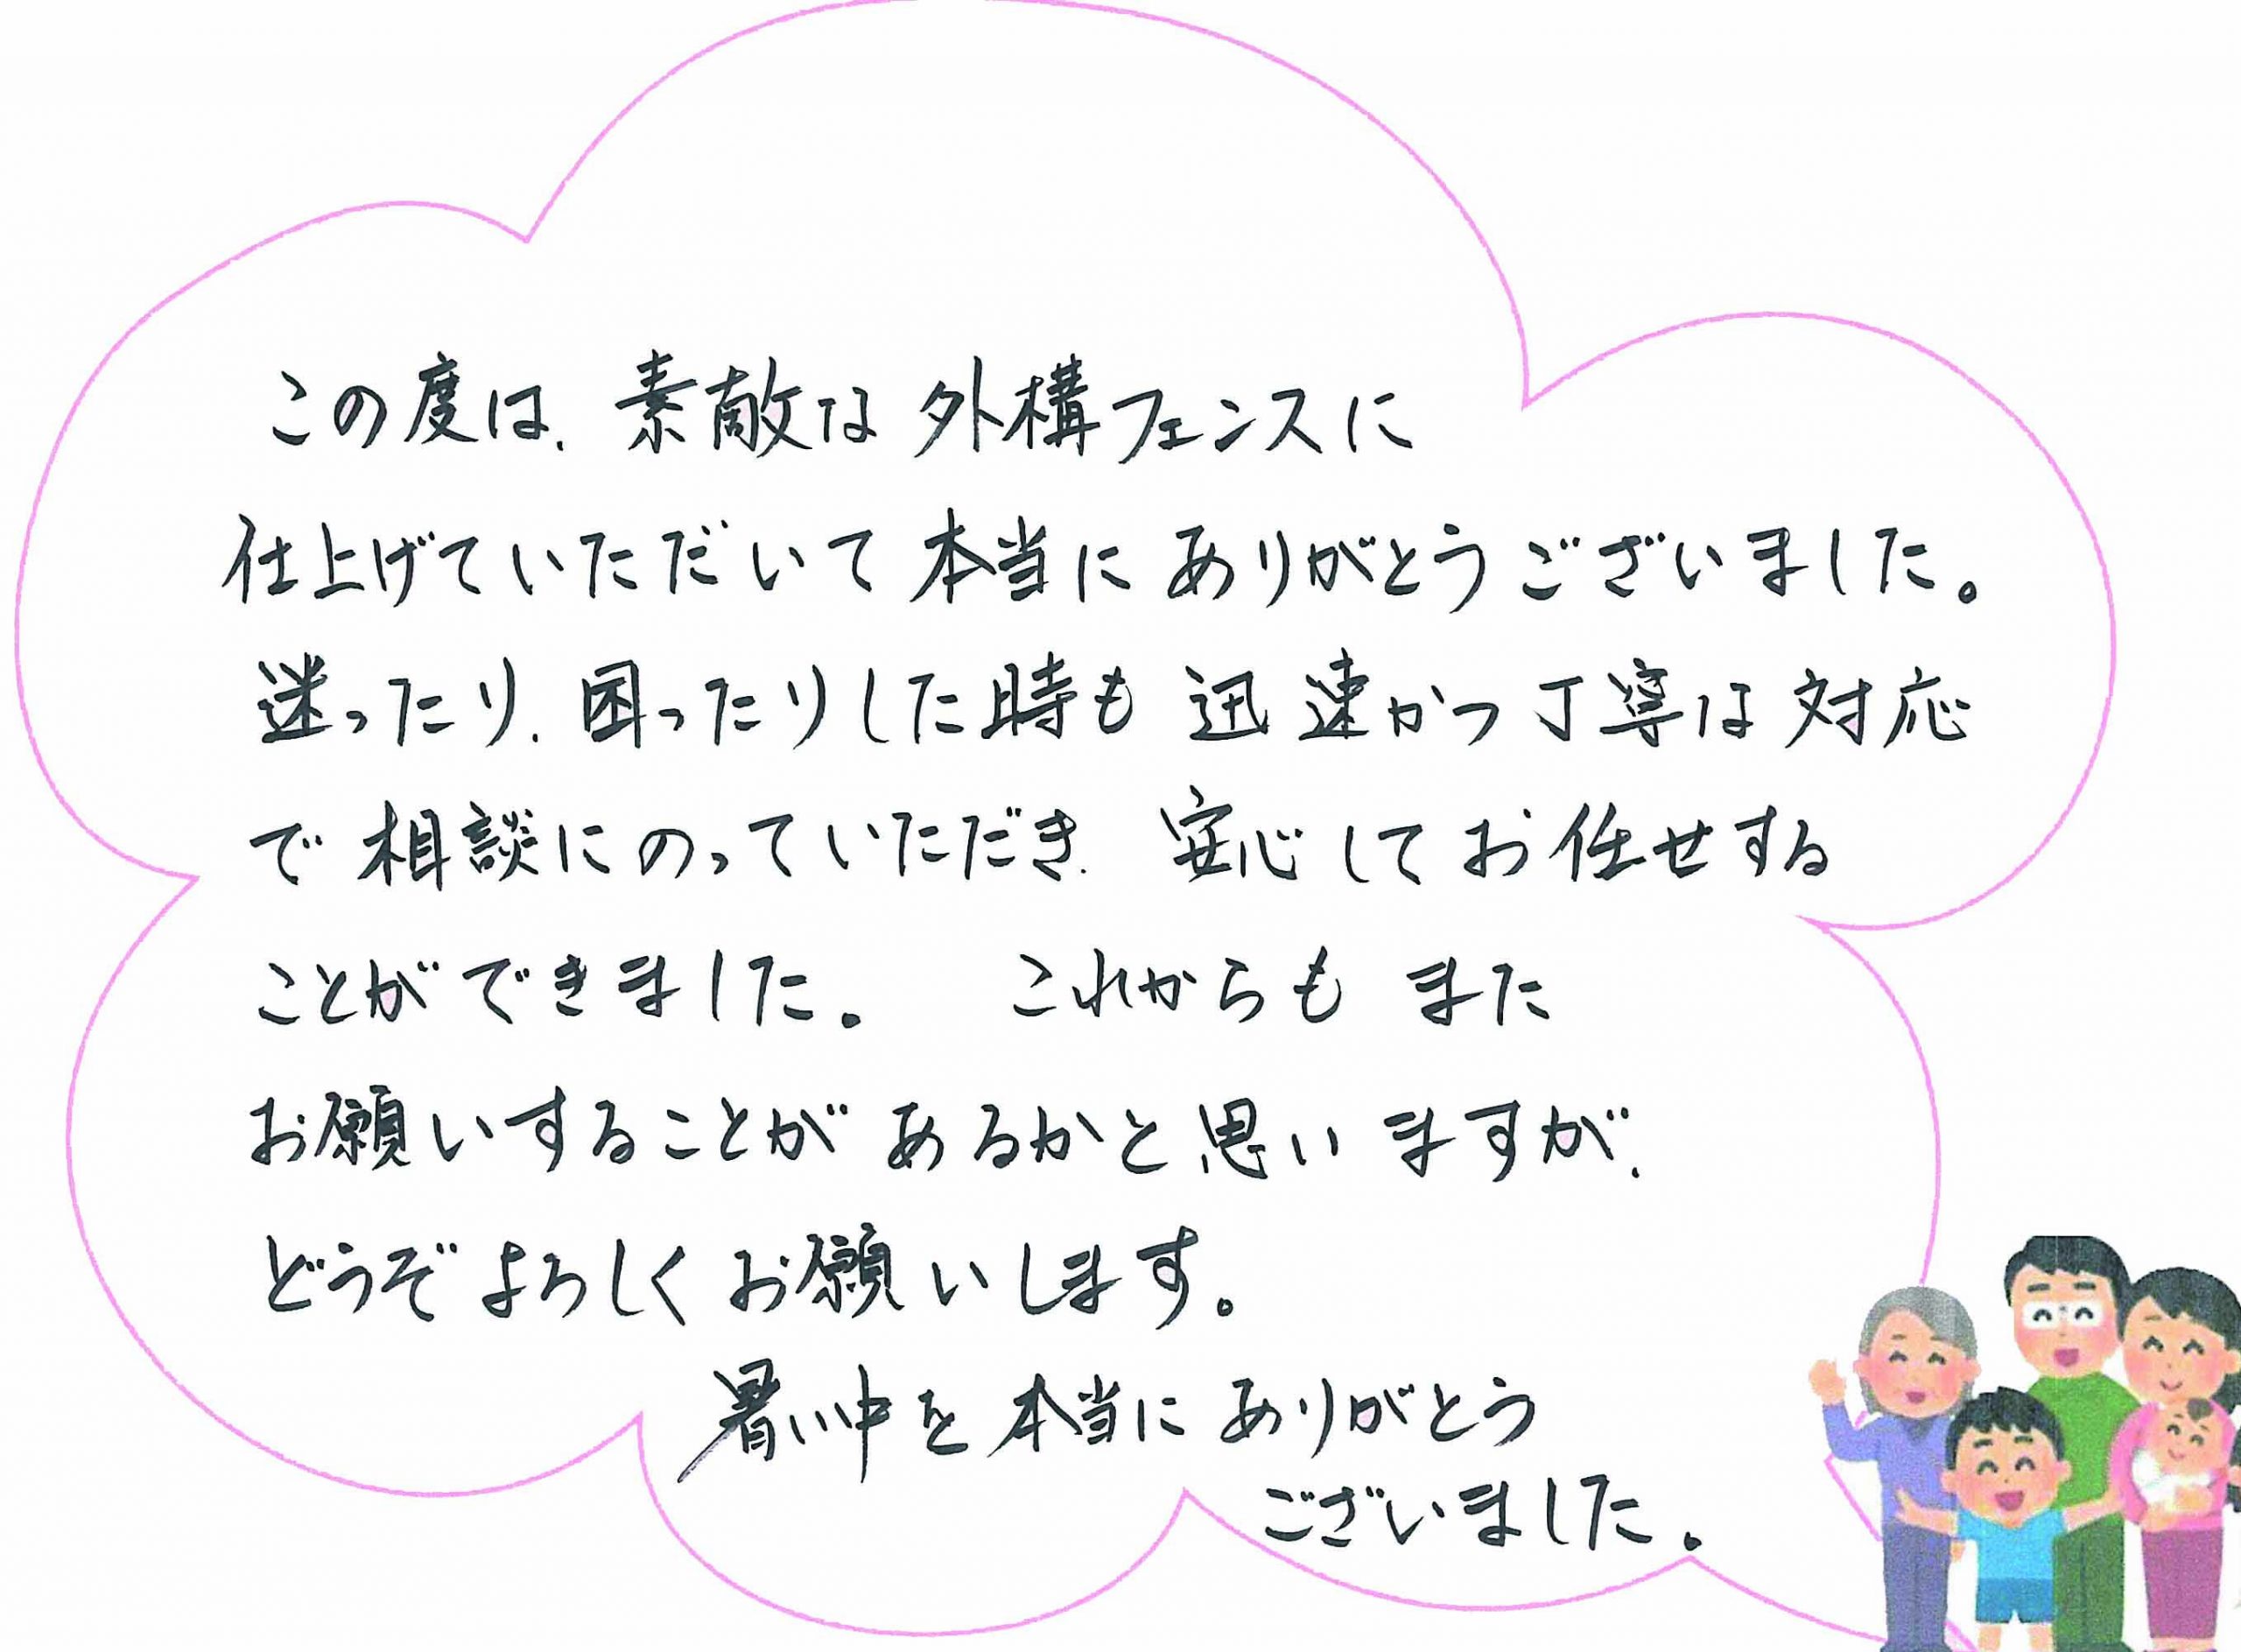 この度は、素敵な外構フェンスに
仕上げていただいて本当にありがとうございました。
迷ったり、困ったりした時も迅速かつ丁寧な対応
で相談にのっていただき、安心してお任せする
ことができました。 これからもまた
お願いすることがあるかと思いますが、
どうぞよろしくお願いします。
暑い中を本当にありがとう
ございました。